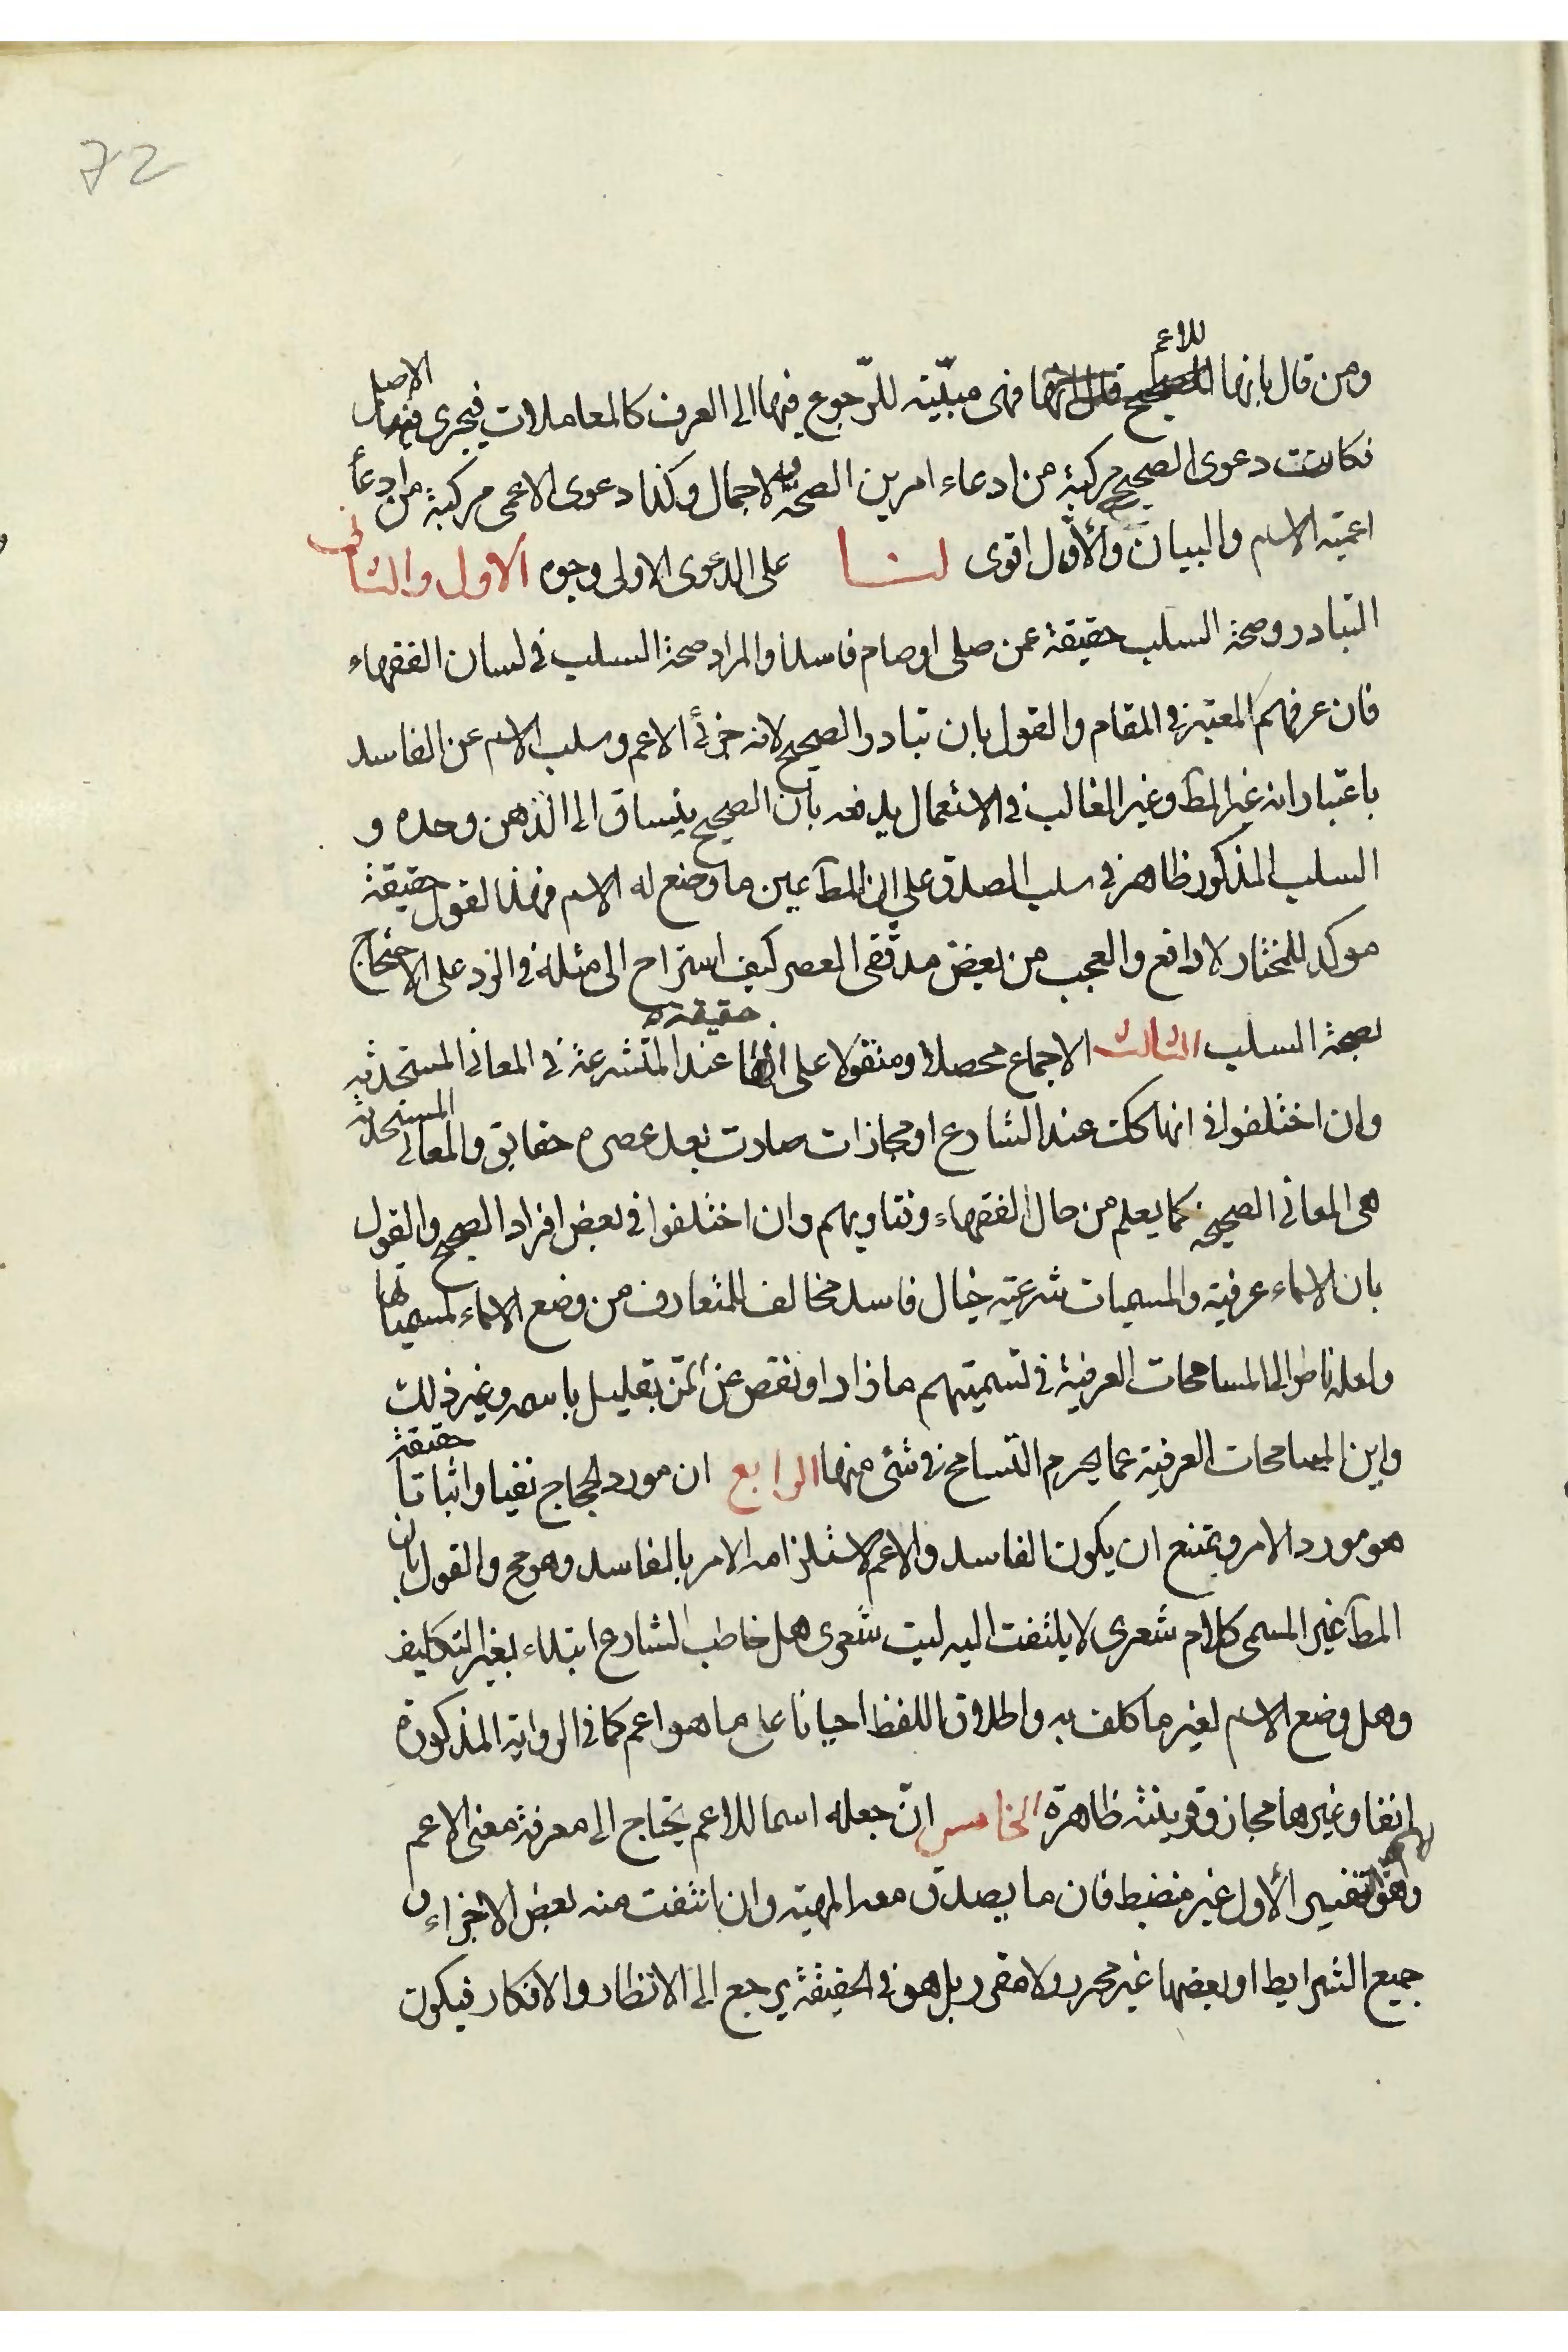 72
ومن قال بانها للاعم فهى مبيّنة للرّجوع فيها الى العرف كالمعاملات فيجرى فيها الاصل
فكانت دعوى الصحيح مركبة من ادعاء امرين الصحة والاجمال وكذا دعوى الاعمى مركبة من ادعا
اعمية الاسم والبيان والأول اقوى لنا على الدعوى الاولى وجوه الاول والثانى
التبادر وصحة السلب حقيقة عمن صلى او صام فاسدا والمراد صحة السلب فى لسان الفقهاء
فان عرفهم المعتبر فى المقام والقول بان تبادر الصحيح لانه جزئى الاعم وسلب الاسم عن الفاسد
باعتبار انه غير المط وغير الغالب فى الاستعمال يدفعه بان الصحيح ينساق الى الذهن وحده و
السلب المذكور ظاهر فى سلب الصدق على ان المط عين ما وضع له الاسم فهذا لقول حقيقة
موكد للمختار لا دافع والعجب من بعض مدققى العصر كيف استراح الى مثله فى الرد على الاحتجاج
بصحة السلب الثالث الاجماع محصلا ومنقولا على انها حقيقة عند المتشرعة فى المعانى المستحدثه
وان اختلفوا فى انها كك عند الشارع او مجازات صارت بعد عصره حقايق والمعانى المستحدثه
هى المعانى الصحيحه كما يعلم من حال الفقهاء وفتاويهم وان اختلفوا فى بعض افراد الصحيح والقول
بان الاسماء عرفية والمسميات شرعية خيال فاسد مخالف للمتعارف من وضع الاسماء لمسمياتها
ولعله ناظر الى المسامحات العرفية فى تسميتهم ما زاد او نقص عن المن بقليل باسمه وغير ذلك
واين المسامحات العرفية عما يحرم التسامح فى شئ منها الرابع ان مورد الحجاج نفيا واثباتا حقيقة
هو مورد الامر ويمتنع ان يكون الفاسد والاعم لاستلزامه الامر بالفاسد وهو مح والقول بان
المط غير المسمى كلام شعرى لا يلتفت اليه ليت شعرى هل خاطب الشارع ابتداء بغير التكليف
وهل وضع الاسم لغير ما كلف به واطلاق اللفظ احيانا على ما هو اعم كما فى الرواية المذكورة
انفا وغيرها مجاز وقرينته ظاهرة الخامس انّ جعله اسما للاعم يحتاج الى معرفة معنى الاعم
وهو التفسير الأول غير منضبط فان ما يصدق معه المهية وان انتفت منه بعض الاجزاء و
جميع الشرايط او بعضها غير محرر ولا مقرر بل هو فى الحقيقة يرجع الى الانظار والافكار فيكون